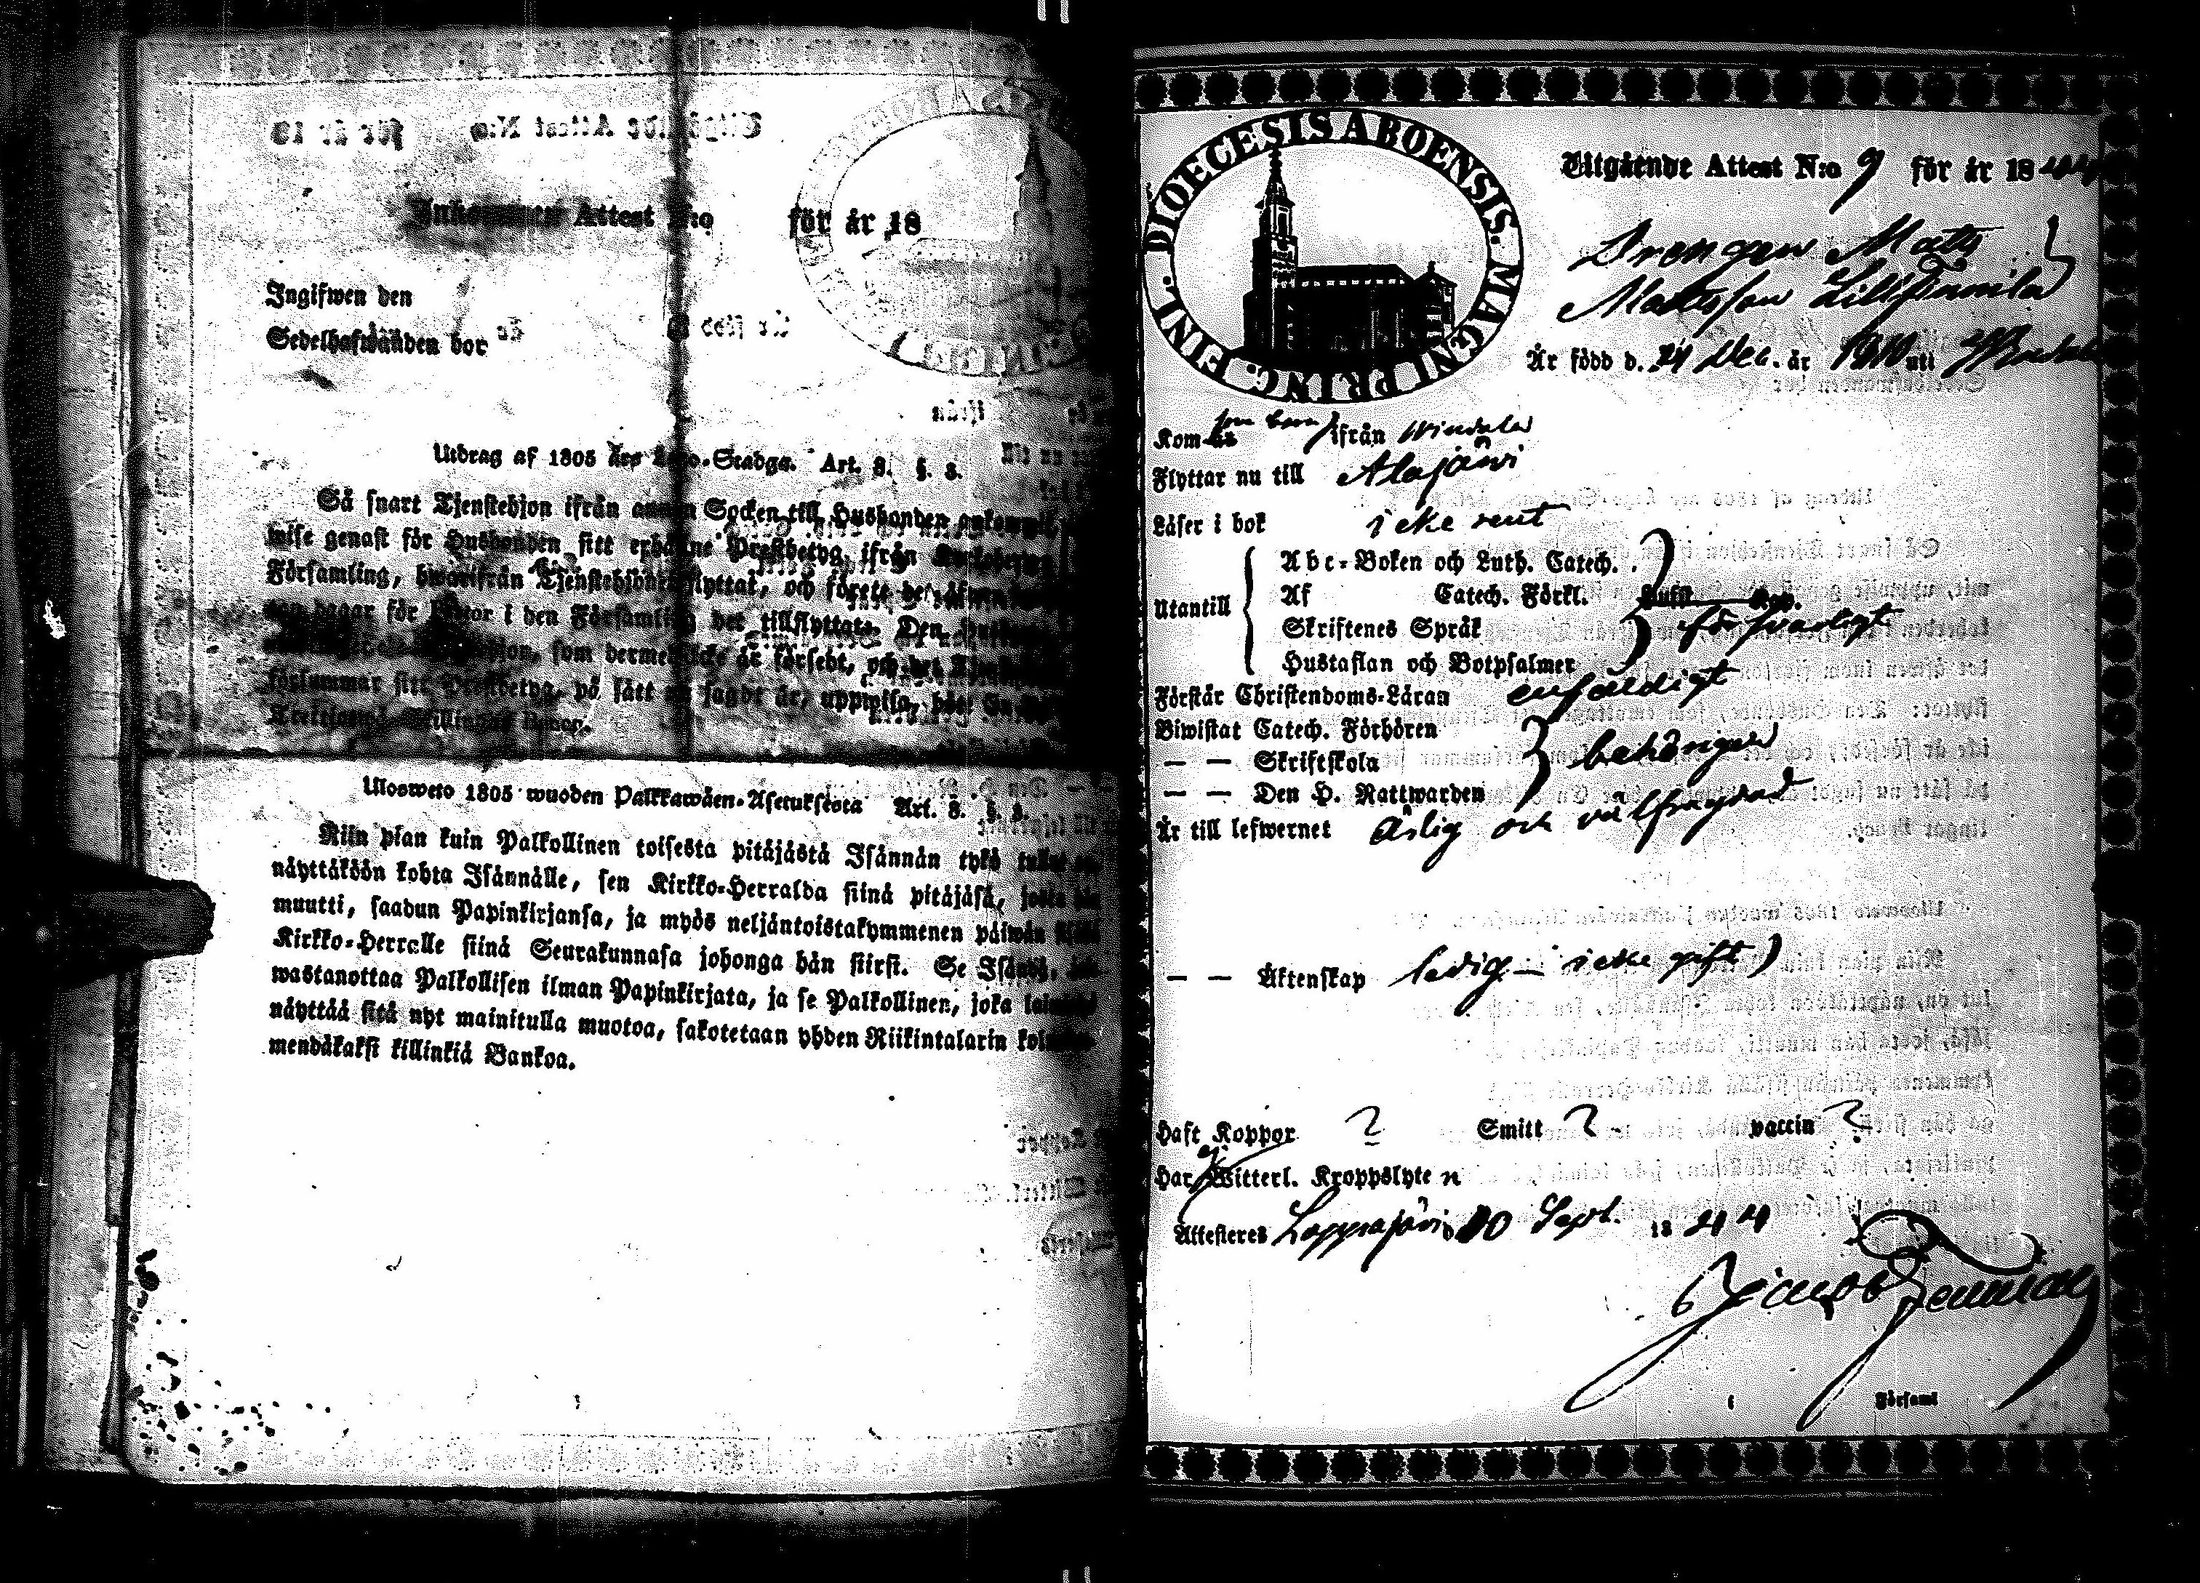 Inkommen Attest N:o för år 18
Ingifwen den
Sedelhafwanden bor
Utdrag af 1805 års Lego-Stadga. Art. 8. §. 3.
Så snart Tjenstehjon ifrån annan Socken till Husbonden
wise genast för Husbonden sitt Prestbetyg, ifrån
Församling, hwarifrån flyttat, och förete det
dagar för i den Församling det tillflyttat. Den
som dermed icke är försedt, och det
försummar sitt Prestbetyg, på sätt sagdt är, uppwisa, böte
Ulosweto 1805 wuoden Palkkawäen-Asetuksesta Art. 8. §. 3.
Niin pian kuin Palkollinen toisesta pitäjästä Isännän tykö
näyttäköön kohta Isännälle, sen Kirkko-Herralda siinä pitäjäsä, josta hän
muutti, saadun Papinkirjansa, ja myös neljäntoistakymmenen päiwän
Kirkko-Herralle siinä Seurakunnasa johonga hän siirsi. Se Isändä,
wastanottaa Palkollisen ilman Papinkirjata, ja se Palkollinen, joka
näyttää sitä nyt mainitulla muotoa, sakotetaan yhden Riikintalarin
mendäkaksi killinkiä Bankoa.
DIOECESIS ABOENSIS. MAGNI PRINC. FINL.
Utgående Attest N:o 9 för år 1844
Drengen Mats
Mattsson
Är född d. 24 Dec. år 1810 uti
Kom som barn ifrån Windala
Flyttar nu till Alajärvi
Läser i bok icke rent
Utantill
Abc-Boken och Luth. Catech.
Af Catech. Förkl.
Skriftenes Språk försvarligt
Hustaflan och Botpsalmer
Förstår Christendoms-Läran enfaldigt
Biwistat Catech. Förhören
— — Skriftskola behörigen
— — Den H. Nattwarden
Är till lefwernet ärlig och välfrägdad
— — Äktenskap ledig – icke gift)
Haft Koppor ? Smitt ? vaccin ?
Har ej Witterl. Kroppslyten
Attesteres Lappajärvi 10 Sept. 1844
Jacob
Församl